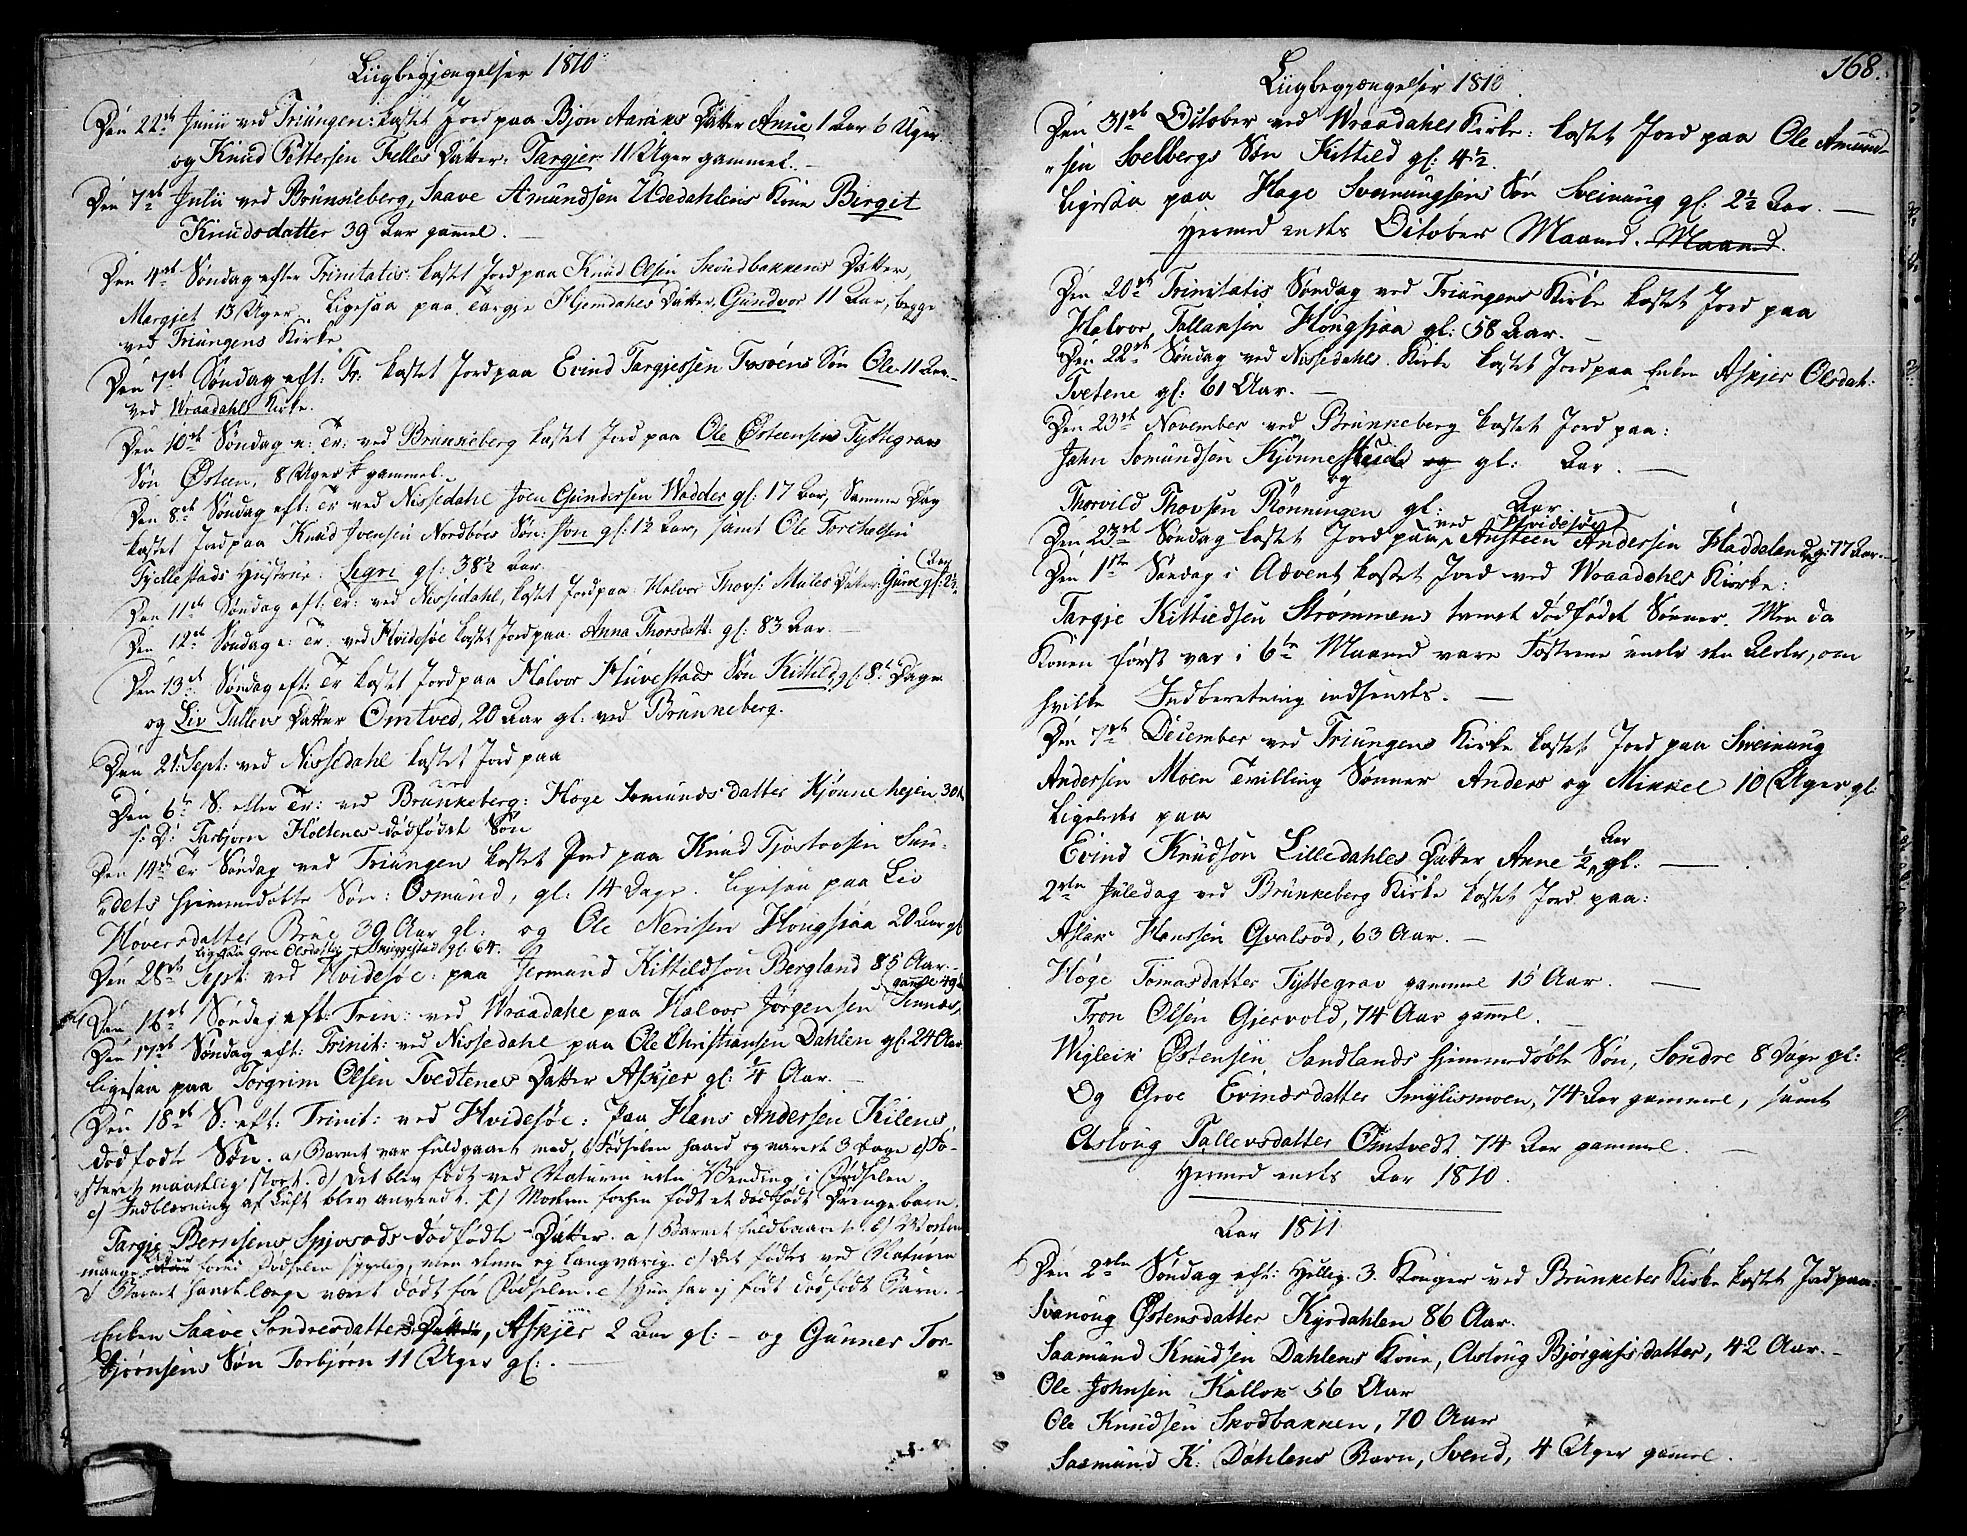 Liigbegjængelser 1810
Den 22de Junii ved Triungen: kastet Jord paa Bjøn Aaraks Datter Anne 1 Aar 6 Uger
og Knud Pettersen Felles Datter: Targjer 11 Uger gammel.
Den 7de Julii ved Brunkeberg, Saave Amundsen Udedahlens Kone Birgit
Knudsdatter 39 Aar gamel.
Den 4de Søndag efter Trinitatis: kastet Jord paa Knud Olsen Skoudbakkens Datter,
Margjet 13 Uger. Ligesaa paa Targje Hjemdahls Datter, Gundvor 11 Aar, begge
ved Triungens Kirke
Den 7de Søndag eft: Tr: kastet Jord paa Evind Targjessen Træens Søn Ole 11 Aar
ved Wraadahls Kirke.
Den 10de Søndag e: Tr: ved Brunkeberg kastet Jord paa Ole Østeensens Tyttegrav
Søn Østeen, 8 Uger gammel.
Den 8de Søndag eft: Tr ved Nissedahl Joen Gundersen Wadder gl: 17 Aar, Samme Dag
kastet Jord paa Knud Joensen Nordboes Søn: Jon gl: 1½ Aar, samt Ole Torchelsen
Tjellestads Hustrue: Segri gl: 38½ Aar.
Den 11te Søndag eft: Tr: ved Nissedahl, kastet Jord paa: Halvor Thovs: Mules Datter: Gune gl: 2½ Aar
Den 12te Søndag e: Tr: ved Hvidesøe kastet Jord paa: Anna Thorsdatt: gl: 83 Aar.
Den 13de Søndag eft: Tr kastet Jord paa Halvor Huvestads Søn Kittild, gl: 8te Dage
og Liv Tallevs Datter Omtved, 20 Aar gl: ved Brunneberg.
Den 21 Sept: ved Nissedahl kastet Jord paa
Den 6te S: efter Tr: ved Brunkeberg: Høge Somunds datter Kjønnehejen 30
s: D: Torbjørn Holtenes dødfødet Søn
Den 14de Tr Søndag ved Triungen kastet Jord paa Knud Tjostovsen Sun-
dets hjemmedøbte Søn: Osmund, gl: 14 Dage. ligesaa paa Liv
Hoversdatter Brue 39 Aar gl: og Ole Nerisen Hougsjaa 20 Aar gl
ligesaa Groe Olsdatter gl: 64.
Den 28de Sept: ved Hvidesøe: paa Jermund Kittildsøn Bergland 85 Aar.
Den 16de Søndag eft: Trin: ved Wraadahl paa Halvor Jørgensen Tinnes, gamel 49
Den 17de Søndag eft: Trinit: ved Nissedahl paa Ole Christiansen Dahlen gl: 24 Aar
ligesaa paa Torgrim Olsen Tvedtenes Datter Askjer gl: ¼ Aar.
Den 18de S: eft: Trinit: ved Hvidesøe: paa Hans Andersen Kilens
dødfødte Søn. a) Barnet var fuldgaaet med, b) Fødselen haard og varede 3 Dage c) Fo-
steret maadelig stort. d) Det blev født ved Naturen uden Vending i Fødselen
e) Indblæsning af Luft blev anvendt. f) Moderen forhen født et dødfødt Drengebarn.
Targje Bersens Spjosods dødfødte Datter. a) Barnet fuldbaaret. b) Moderen
mange Uger forud Fødselen sygelig, men denne ej langvarig. c) Det fødtes ved Naturen
d) Barnet havde længe været dødt før Fødselen. e) hun har ej født dødfødt Barn.
Enken Saave Sondresdatters Datter, Askjer 2 Aar gl: – og Gunner Tor-
bjørnsens Søn Torbjørn 11 Uger gl:
168.
Liigbegjængelser 1810
Den 31de October ved Wraadahls Kirke: kastet Jord paa Ole Amund-
sen Soelbergs Søn Kittild gl: 4½
Ligesaa paa Hage Svennungsens Søn Sveinung gl: 2½ Aar.
Hermed endes October Maaned. Maaned
Den 20de Trinitatis Søndag ved Triungens Kirke kastet Jord paa
Halvor Tallaksen Hougsjaa gl: 58 Aar.
Den 22de Søndag ved Nissedahls Kirke kastet Jord paa Enken Askjer Olsdat:
Tvetene gl: 61 Aar.
Den 23de November ved Brunkeberg kastet Jord paa:
Jahn Somundsen Kjønneskeid og gl: Aar.
og
Thorvild Thovsen Rønningen gl: Aar
Den 23de Søndag kastet Jord paa ved Hvidesøe Austeen Andersen Haddeland gl: 77 Aar.
Den 1ste Søndag i Advent kastet Jord ved Wraadahls Kirke:
Targje Kittildsen Strømmens tvende dødfødte Sønner. Men da
Konen først var i 6te Maaned vare Fostrene under den Alder, om
hvilke Indberetning indsendes.
Den 7de December ved Triungens Kirke kastet Jord paa Sveinung
Andersen Moen Tvilling Sønner Anders og Mikkel 10 Uger gl:
Ligeledes paa
Evind Knudsøn Lilledahls Datter Anne ½ Aar gl:
2den Juledag ved Brunkeberg Kirke kastet Jord paa:
Aslak Hanssen Gvalsod, 63 Aar.
Høge Tomasdatter Tyttegrav gammel 15 Aar.
Tron Olsen Gjersvold, 74 Aar gamel.
Wigleik Østensen Sandlands hjemmedøbte Søn, Sondre 8 Dage gl:
Og Groe Evindsdatter Smylimoen, 74 Aar gammel, samt
Asloug Tallevsdatter Omtvedt 74 Aar gammel.
Hermed endes Aar 1810.
Aar 1811
Den 2den Søndag eft: Hellig. 3. Konger ved Brunkeber Kirke kastet Jord paa:
Svanoug Østensdatter Kyrdahlen 86 Aar.
Saamund Knudsen Dahlens Kone, Asloug Bjørgufsdatter, 42 Aar.
Ole Johnsen Kallok 56 Aar
Ole Knudsen Skodbakken, 70 Aar
Saamund K: Dahlens Barn, Svend, 4 Uger gamel.